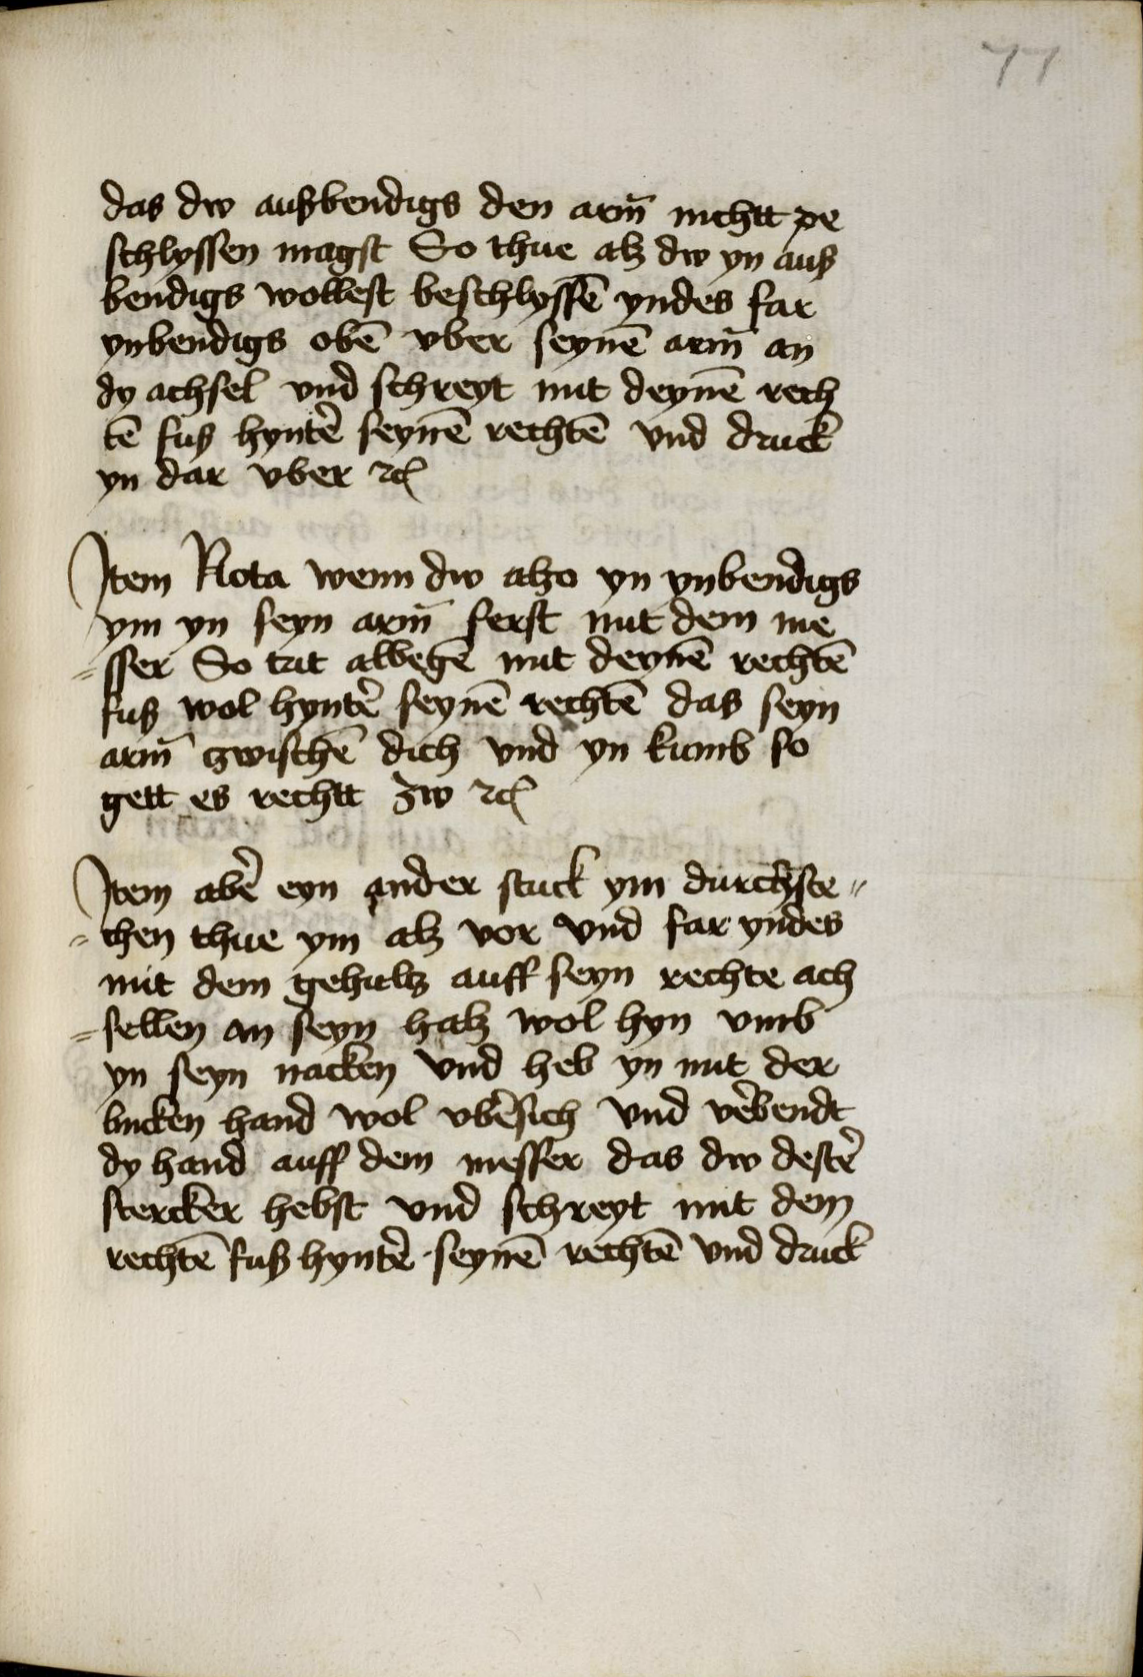 77
das dw außbendigs den arm̄ nichtt pe
schlyssen magst So thue alz dw yn auß
bendigs wollest beschlyssē yndes far
ynbendigs obē vber seynē arm̄ an
dy achsel vnd schreyt mit deynē rech
tē fuß hynter̄ seynē rechtē vnd druck
yn dar vber ꝛc
Item Nota wenn dw alzo yn ynbendigs
ym yn seyn arm̄ ferst mit dem me
=sser So trit allbegē mit deynē rechtē
fuß wol hynter̄ seynē rechtē das seyn
arm̄ zwischē dich vnd yn kumb so
gett es rechtt zw ꝛc
Item aber̄ eyn ander stuck ym durchste=
=chen thue ym alz vor vnd far yndes
mit dem gehultz auff seyn rechte ach
=sellen an seyn halz wol hyn vmb
yn seyn nacken vnd heb yn mit der
lincken hand wol vber̄sich vnd ver̄bendt
dy hand auff dem messer das dw dester̄
stercker hebst vnd schreyt mit dem
rechtē fuß hynter̄ seynē rechtē vnd druck